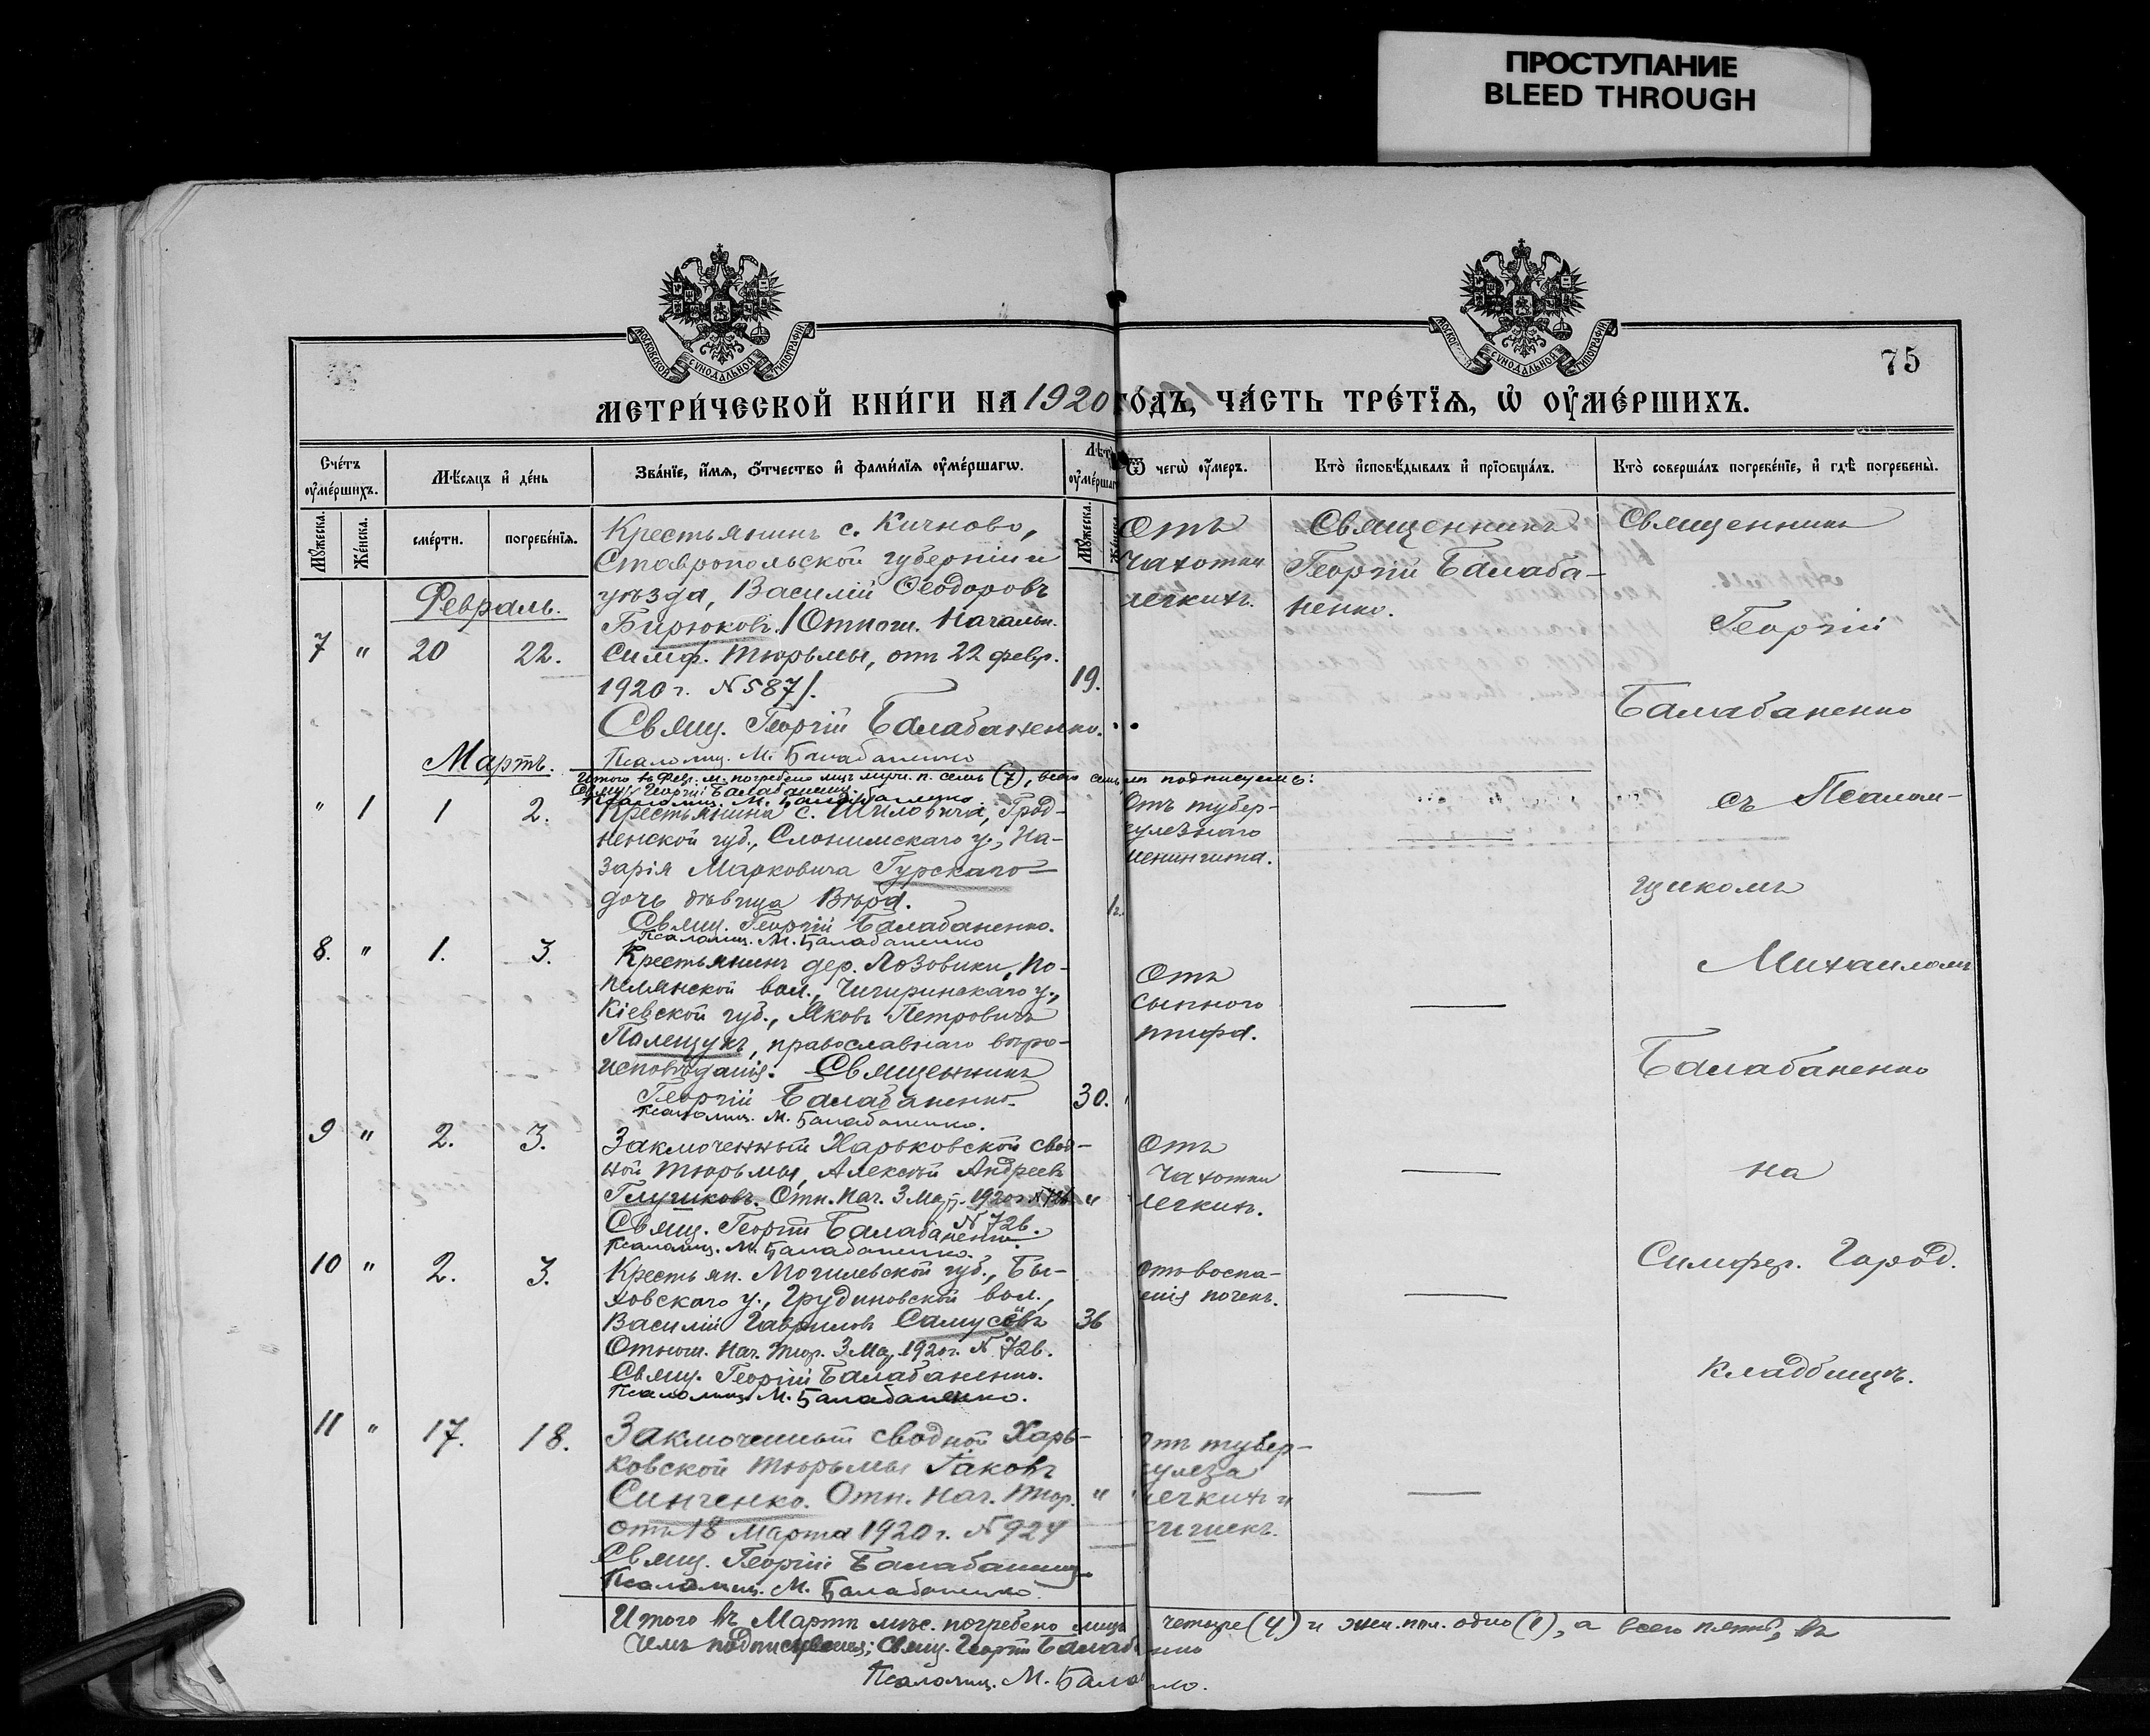 ПРОСТУПАНИЕ
BLEED THROUGH
МОСКОВСКОЙ СѴНОДАЛЬНОЙ ТИПОГРАФІИ
МОСКОВСКОЙ СѴНОДАЛЬНОЙ ТИПОГРАФІИ
75
МЕТРИ́ЧЕСКОЙ КНИ́ГИ НА 1920 ГО́ДЪ, ЧА́СТЬ ТРЕ́ТЇѦ, Ѡ ОУ҆МЕ́РШИХЪ.
Сче́тъ оу҆ме́ршихъ.
Мѣ́сѧцъ и҆ де́нь
Зва́нїе, и҆́мѧ, ѻ҆́тчество и҆ фами́лїѧ оу҆ме́ршагѡ.
Лѣ́та оу҆ме́ршагѡ
Ѿ чегѡ̀ оу҆́меръ.
Кто̀ и҆сповѣ́дывалъ и҆ прїѡбща́лъ.
Кто̀ соверша́лъ погребе́нїе, и҆ гдѣ̀ погребены̀.
Мꙋ́жеска.
Же́нска.
сме́рти.
погребе́нїѧ.
Мꙋ́жеска.
Февраль.
7 " 20 22.
Крестьянинъ с. Кичново,
Ставропольской губерніи и
уѣзда, Василій Ѳеодоровъ
Бирюковъ. /Отнош. Начальн.
Симф. тюрьмы, отъ 22 февр.
1920 г. N 587/.
Свящ. Георгій Балабаненко.
Псаломщ. М. Балабаненко
19.
Отъ
чахотки
легкихъ.
Священникъ
Георгій Балаба-
ненко.
Священникъ
Георгій
Балабаненко
съ Псалом-
щикомъ
Михаиломъ
Балабаненко
на
Симфер. Город.
Кладбищѣ.
Итого въ Февр. м. погребено лицъ муж. п. семь (7), всего семь подписуемъ:
Свящ. Георгій Балабаненко.
Псаломщ. М. Балабаненко.
Мартъ.
" 1 1 2.
Крестьянина с. Шиловича, Грод-
ненской губ., Слонимскаго у., На-
зарія Марковича Гурскаго
дочь дѣвица Вѣра.
Свящ. Георгій Балабаненко.
Псаломщ. М. Балабаненко
1 г.
Отъ тубер-
кулезнаго
менингита.
8. " 1. 3.
Крестьянинъ дер. Лозовики, По-
Чигиринскаго у.,
Кіевской губ., Яковъ Петровичъ
Палещукъ, православнаго вѣро-
исповѣданія. Священникъ
Георгій Балабаненко.
Псаломщ. М. Балабаненко.
30.
Отъ
сыпного
тифа.
9 " 2. 3.
Заключенный Харьковской свод-
ной тюрьмы, Алексѣй Андреевъ
Глушковъ. Отн. Нач. 3 Мар. 1920 г.
N 726.
Свящ. Георгій Балабаненко.
Псаломщ. М. Балабаненко.
"
Отъ
чахотки
легкихъ.
10 " 2. 3.
Крестьян. Могилевской губ., Бы-
ховскаго у., Грудиновской вол.,
Василій Гавриловъ Самусёвъ
Отнош. Нач. тюр. 3 Мар. 1920 г. N 726.
Свящ. Георгій Балабаненко.
Псаломщ. М. Балабаненко.
36
Отъ воспа-
енія почекъ.
11 " 17. 18.
Заключенный сводной Харь-
ковской тюрьмы Іаковъ
Синченко. Отн. Нач. Тюр.
отъ 18 Марта 1920 г. N 924
Свящ. Георгій Балабаненко
Псаломщ. М. Балабаненко.
"
Отъ тубер-
кулеза
легкихъ и
Итого въ Мартѣ мѣс. погребено лицъ четыре (4) и жен. пол. одно (1), а всего пять, въ
чемъ подписуемся: Свящ. Георгій Балабаненко
Псаломщ. М. Балабаненко.